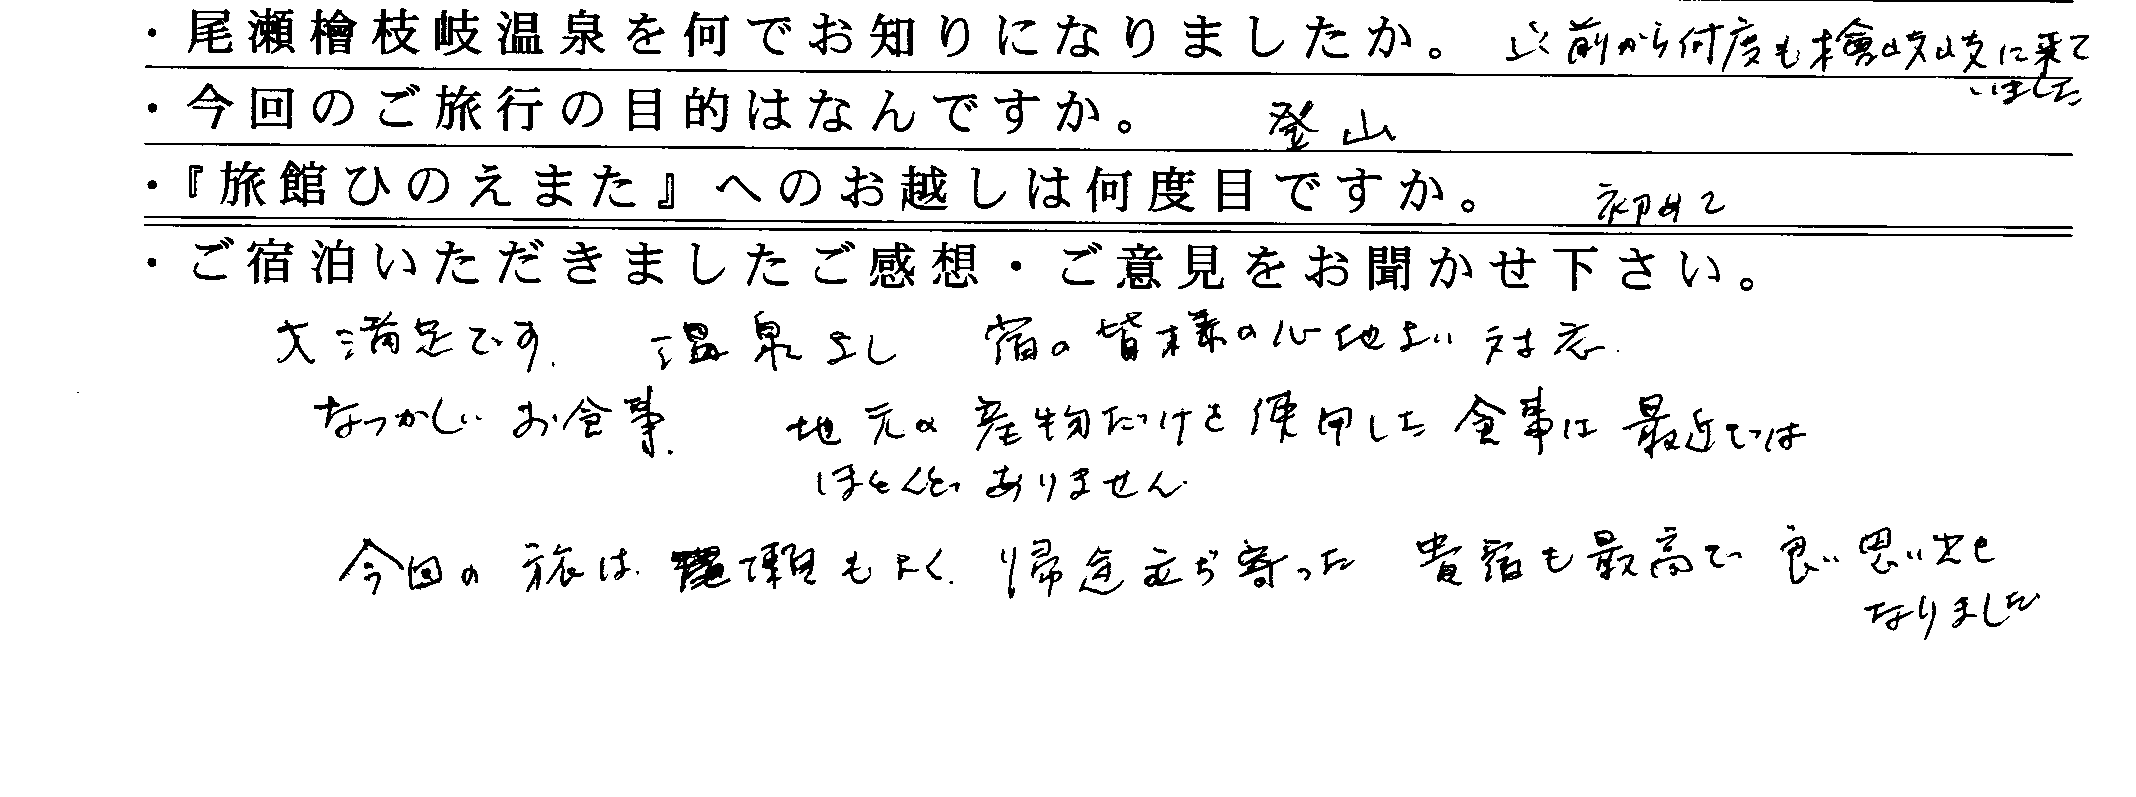 ・尾瀬檜枝岐温泉を何でお知りになりましたか。 以前から何度も檜岐岐に来て
いました
・今回のご旅行の目的はなんですか。 登山
・『旅館ひのえまた』へのお越しは何度目ですか。 初めて
・ご宿泊いただきましたご感想・ご意見をお聞かせ下さい。
大満足です. 温泉よし 宿の皆様の心地よい対応.
なつかしいお食事. 地元の産物だけを使用した食事は最近では
ほとんどありません.
今回の旅は. 尾瀬もよく. 帰途立ち寄った 貴宿も最高で 良い思い出と
なりました